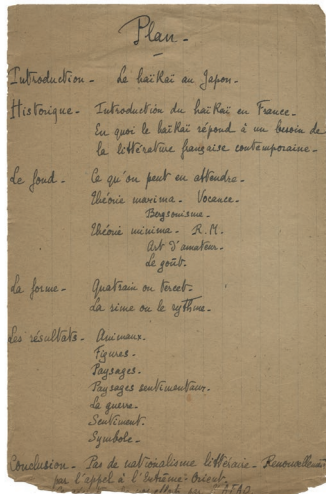 Plan -
Introduction - Le haïkaï au Japon -
Historique - Introduction du haïkaï en France -
En quoi le haïkaï répond à un besoin de
la littérature française contemporaine -
Le fond - Ce qu'on peut en attendre -
Théorie maxima - Vocance -
Bergsonisme -
Théorie minima - R. M.
Art d'amateur -
Le goût -
La forme - Quatrain ou tercet -
La rime ou le rythme -
Les résultats - Animaux -
Figures -
Paysages -
Paysages sentimentaux -
La guerre -
Sentiment -
Symbole -
Conclusion - Pas de nationalisme littéraire - Renouvellement
par l'appel à l'Extrême-Orient -